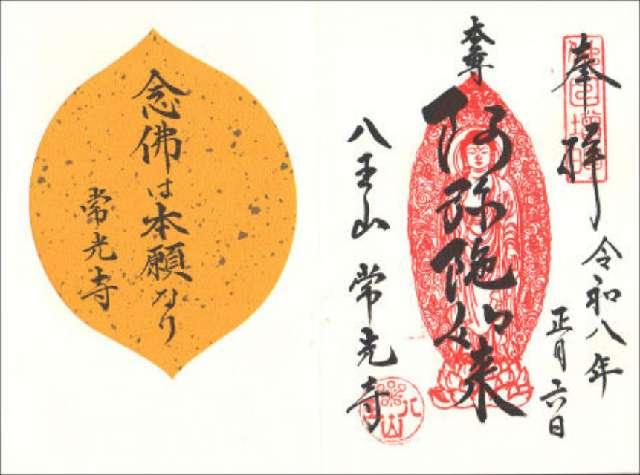 奉拝 令和八年
正月六日
本尊
阿弥陀如来
八王山 常光寺
念佛は本願なり
常光寺